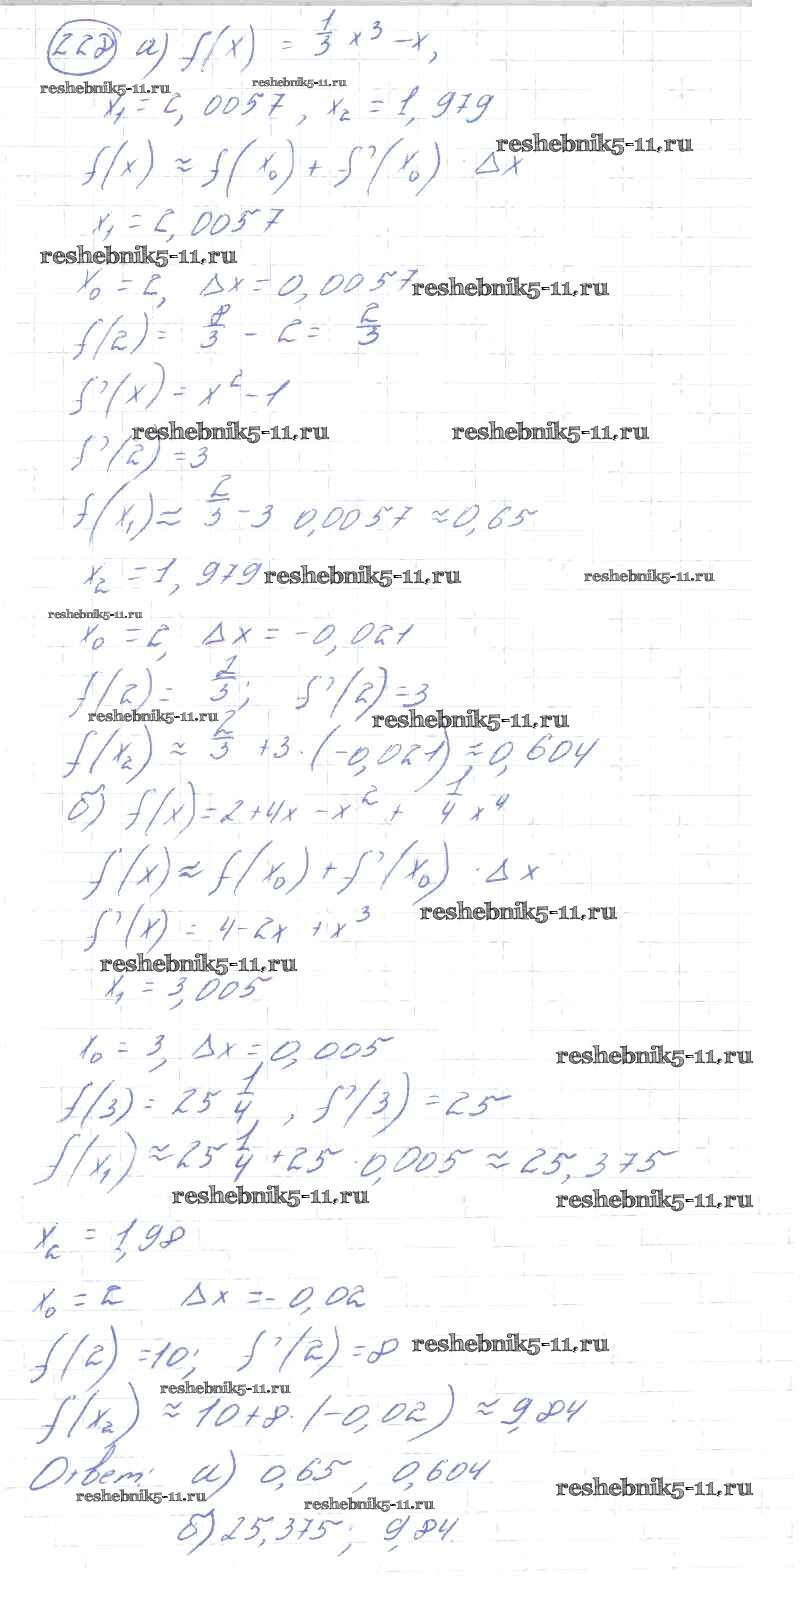 228 а) f(x) = 1/3 x³ - x,
reshebnik5-11.ru reshebnik5-11.ru
x₁ = 2,0057, x₂ = 1,979
reshebnik5-11.ru
f(x) ≈ f(x₀) + f'(x₀) · Δx
x₁ = 2,0057
reshebnik5-11.ru
x₀ = 2, Δx = 0,0057
reshebnik5-11.ru
f(2) = 8/3 - 2 = 2/3
f'(x) = x² - 1
reshebnik5-11.ru reshebnik5-11.ru
f'(2) = 3
f(x₁) ≈ 2/3 - 3 0,0057 ≈ 0,65
x₂ = 1,979
reshebnik5-11.ru reshebnik5-11.ru
reshebnik5-11.ru
x₀ = 2, Δx = -0,021
f(2) = 2/3; f'(2) = 3
reshebnik5-11.ru reshebnik5-11.ru
f(x₂) ≈ 2/3 + 3 · (-0,021) ≈ 0,604
б) f(x) = 2 + 4x - x² + 1/4 x⁴
f(x) ≈ f(x₀) + f'(x₀) · Δx
reshebnik5-11.ru
f'(x) = 4 - 2x + x³
reshebnik5-11.ru
x₁ = 3,005
x₀ = 3, Δx = 0,005
reshebnik5-11.ru
f(3) = 25 1/4, f'(3) = 25
f(x₁) ≈ 25 1/4 + 25 · 0,005 ≈ 25,375
reshebnik5-11.ru reshebnik5-11.ru
x₂ = 1,98
x₀ = 2 Δx = -0,02
f(2) = 10; f'(2) = 8
reshebnik5-11.ru
reshebnik5-11.ru
f(x₂) ≈ 10 + 8 · (-0,02) ≈ 9,84
Ответ: а) 0,65; 0,604
reshebnik5-11.ru reshebnik5-11.ru reshebnik5-11.ru
б) 25,375; 9,84.